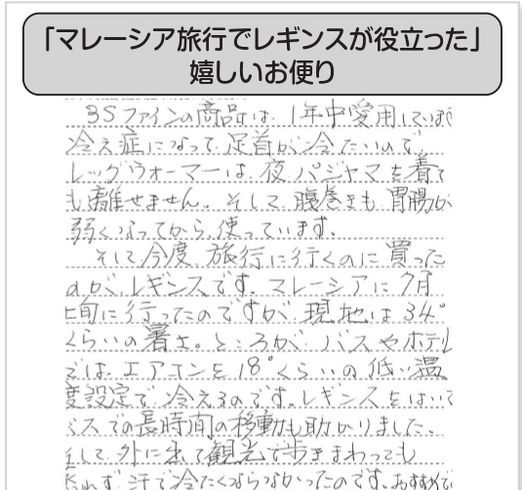 「マレーシア旅行でレギンスが役立った」
嬉しいお便り
BSファインの商品は、1年中愛用してい
冷え症になって、足首が冷たいので、
レッグウォーマーは、夜パジャマを着て
も離せません。そして腹巻きも胃腸が
弱くなってから、使っています。
そして今度、旅行に行くのに買った
のが、レギンスです。マレーシアに7月
上旬に行ったのですが、現地は34°
くらいの暑さ。ところが、バスやホテル
では、エアコンを18°くらいの低い温
度設定で、冷えるのです。レギンスをはいて
バスでの長時間の移動も助かりました。
そして、外に出て観光で歩きまわっても
れず、汗で冷たくならなかったのです。おすすめで